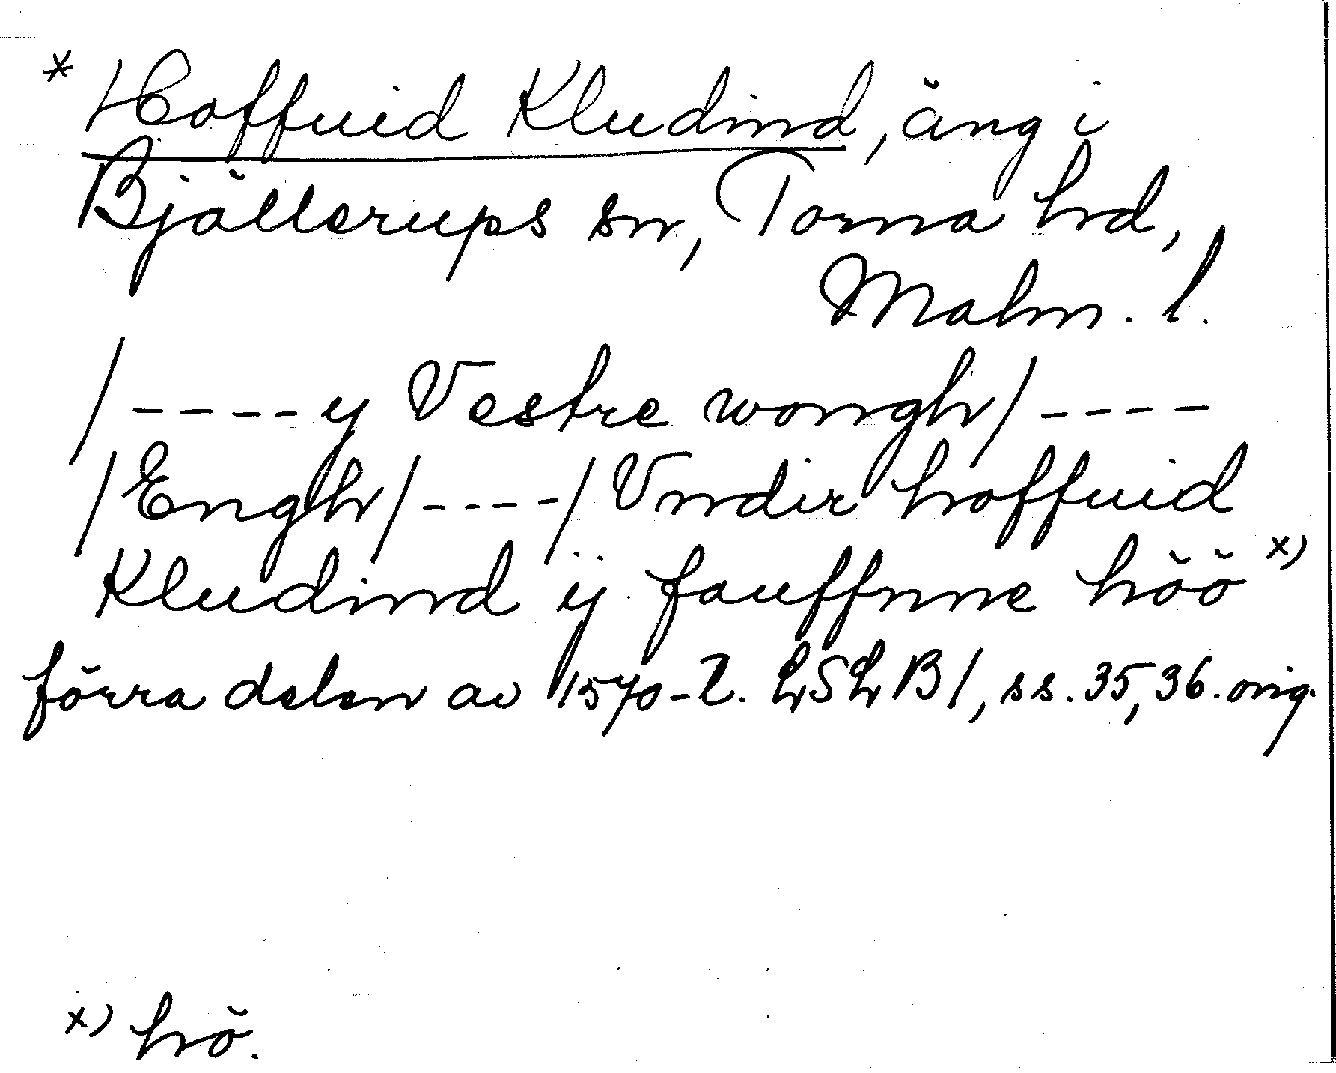 * Hoffuid Kludind, äng i
Bjällerups sn, Torna hd,
Malm. l.
/----y Vestre wongh/----
/Engh/----/Vndir hoffuid
Kludind ij fauffnne höö x)
förra delen av 1570-t. LSLB1, ss. 35, 36. orig.
x) hö.